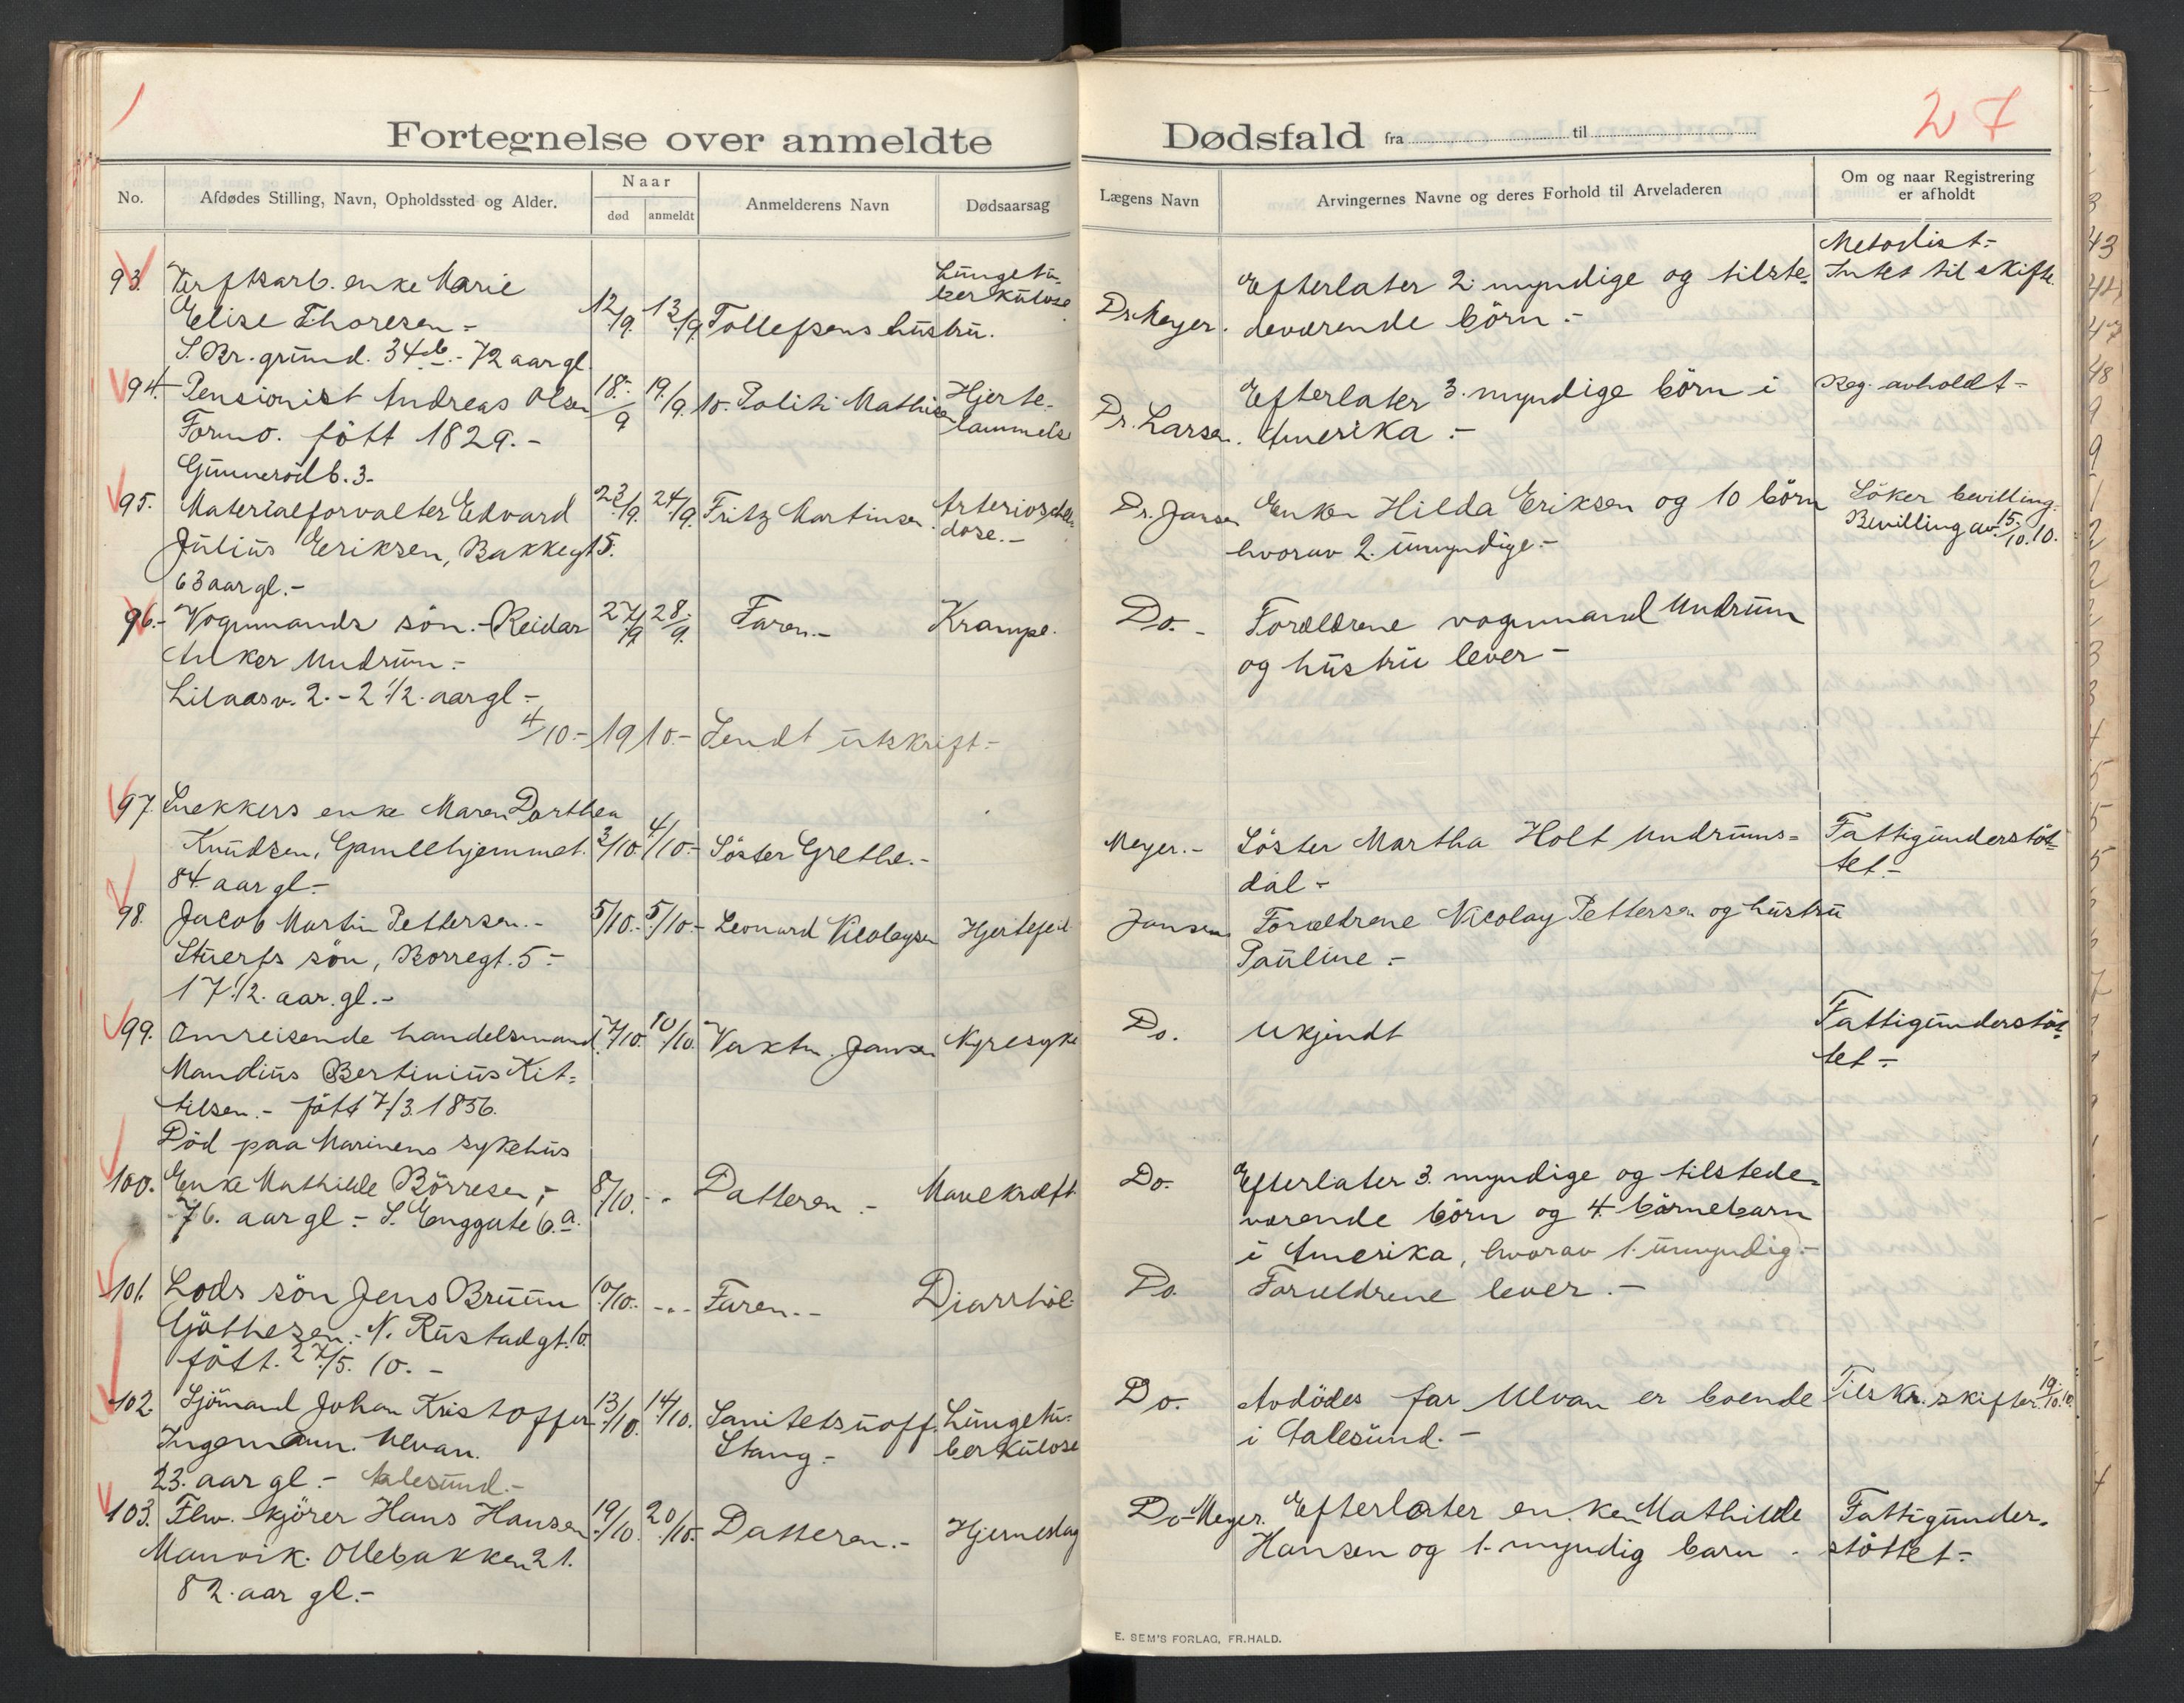 27
Fortegnelse over anmeldte Dødsfald fra til
No.
Afdødes Stilling, Navn, Opholdssted og Alder.
Naar
død
anmeldt
Anmelderens Navn
Dødsaarsag
Lægens Navn
Arvingernes Navne og deres Forhold til Arveladeren
Om og naar Registrering
er afholdt
93. Verftsarb. enke Marie
Elise Thoresen -
S. Br. grund. 34 b. - 72 aar gl.
12/9. 13/9. Tollefsens hustru.
Lungetu-
berkulose
Dr. Meyer.
Efterlater 2 myndige og tilste-
deværende börn.-
Metodist.-
Intet til skifte.
94. Pensionist Andreas Olsen
Formo. född 1829.-
Gunnerödb. 3.
18/9 19/9. 10. Politi Mathisen
Hjerte-
lammelse
Dr. Larsen.
Efterlater 3. myndige börn i
Amerika.-
Reg. avholdt-
95. Materialforvalter Edvard
Julius Eriksen, Bakkegt 5.
63 aar gl.-
23/9. 24/9. Fritz Martinsen.
Arterioscle-
dose.-
Dr. Jansen
Enken Hilda Eriksen og 10 börn
hvorav 2. umyndige.-
Söker bevilling.
Bevilling av 15/10.10.
96.- Vognmands sön.- Reidar
Anker Undrum.-
Lilaasv. 2.- 2 1/2. aar gl.-
27/9 28/9. Faren.-
Krampe.
Do.-
Forældrene vognmand Undrum
og hustru lever-
4/10.- 1910.- Sendt utskrift.-
97. Snekkers enke Maren Dorthea
Knudsen, Gamlehjemmet.
84 aar gl.-
3/10. 4/10.- Söster Grethe.-
Meyer.-
Söster Martha Holt Undrums-
dal-
Fattigunderstöt-
tet.-
98. Jacob Martin Pettersen.-
Stuerts sön, Borregt. 5.-
17 1/2. aar. gl.-
5/10.- 5/10.- Leonard Nicolaysen
Hjertefeil
Jansen
Forældrene Nicolay Pettersen og hustru
Pauline.-
99. Omreisende handelsmand
Mandius Bertinius Kit-
tilsen.- född 7/3 1856.
Död paa Marinens sykehus
7/10. 10/10. Vaktm. Jansen
Nyresyke
Do.
Ukjendt
Fattigunderstöt-
tet-
100. Enke Mathilde Börresen,-
76. aar gl.- S. Enggate 6. a.
8/10. - " Datteren.-
Mavekræft
Do.
Efterlater 3. myndige og tilstede-
værende börn og 4. börnebarn
i Amerika, hvorav 1. umyndig.-
101. Lods sön Jens Bruun
Gjöthesen.- N. Rustadgt. 10.
född. 27/5. 10.-
10/10. - " - Faren.-
Diarrhöe
Do.
Forældrene lever.-
102. Sjömand Johan Kristoffer
Ingemann. Ulvan.
23. aar gl.- Aalesund.-
13/10. 14/10. Sanitetsuoff.
Stang.-
Lungetu-
berkulose
Do.
Avdödes far Ulvan er boende
i Aalesund.-
Tilskr. skifter. 19/10.10.
103. Flw. kjörer Hans Hansen
Manvik. Ollebakken 21.
82. aar gl.-
19/10. 20/10. Datteren.-
Hjerneslag
Do-Meyer.
Efterlater enken Mathilde
Hansen og 1. myndig barn.
Fattigunder-
stöttet-
E. SEM'S FORLAG, FR.HALD.